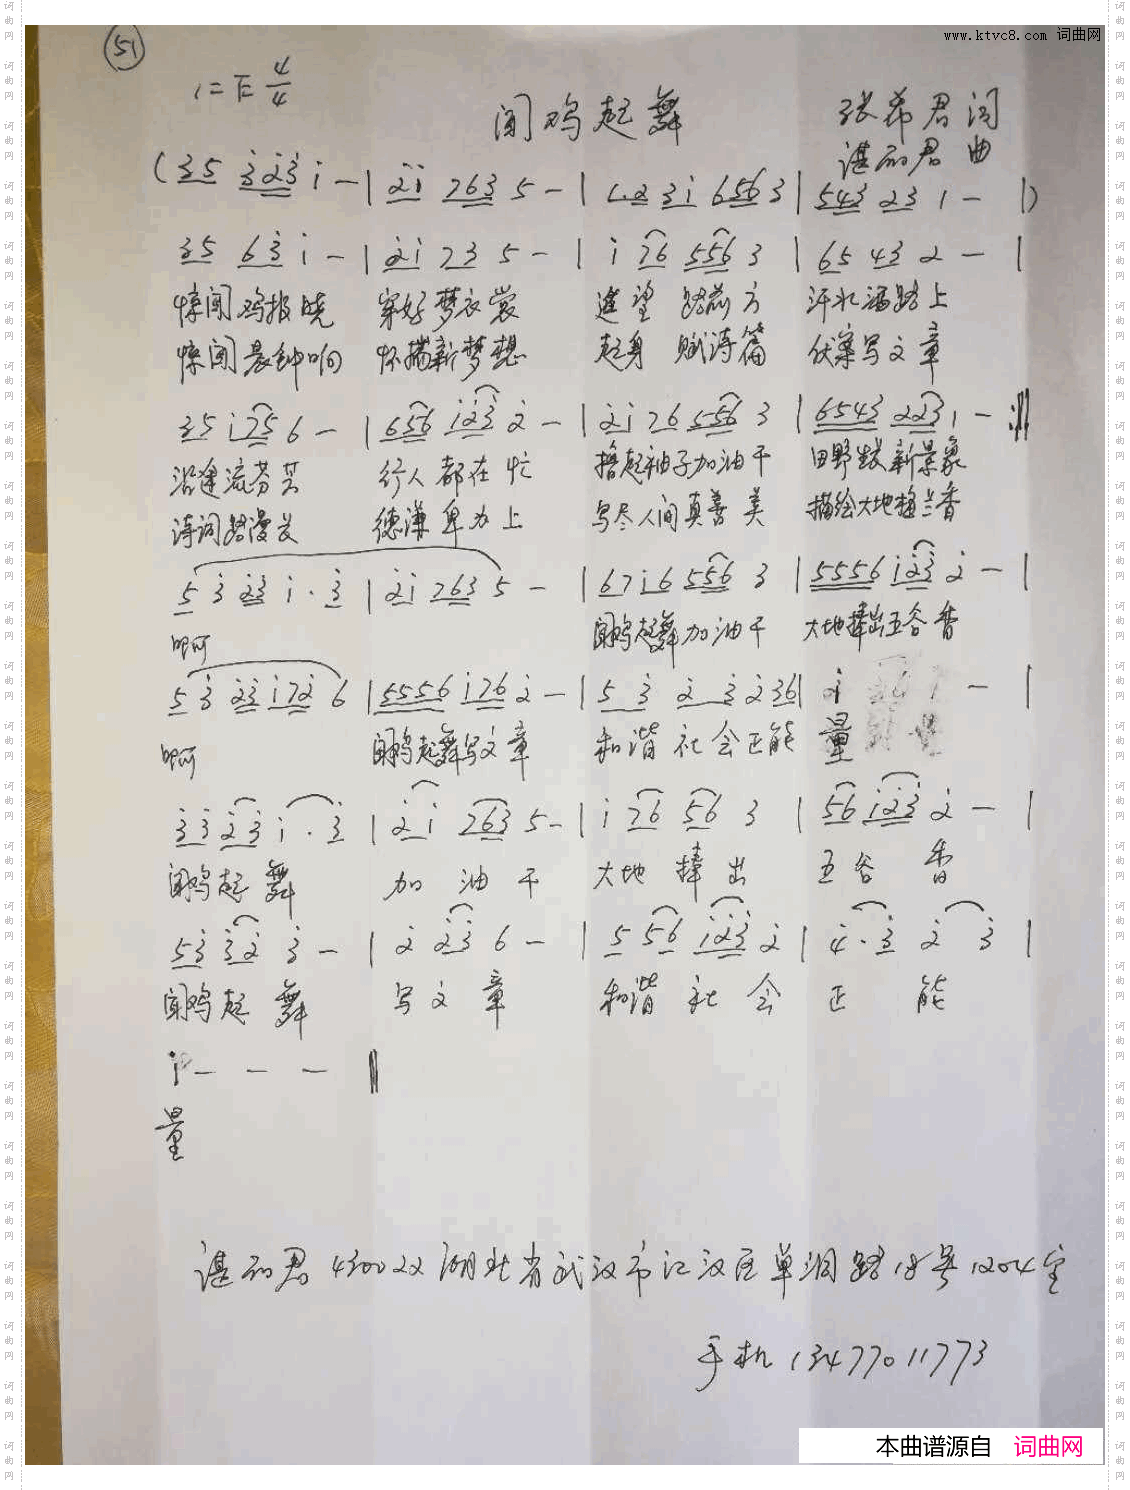 www.ktvc8.com 词曲网
51
1=E 4/4
闻鸡起舞
张希君词
谌丽君曲
(35 323 1 - | 21 763 5 - | 1.2 31 656 3 | 543 23 1 - |)
35 63 1 - | 21 73 5 - | 1 76 556 3 | 65 43 2 - |
惊闻鸡报晓 穿好梦衣裳 遥望 路前方 汗水洒路上
惊闻晨钟响 怀揣新梦想 起身 赋诗篇 伏案写文章
35 175 6 - | 656 123 2 - | 21 76 556 3 | 6543 223 1 - :||
沿途流芬芳 行人都在忙 撸起袖子加油干 田野发新景象
诗词路漫长 德谦卑为上 写尽人间真善美 描绘大地梅兰香
5 3 23 1 . 3 | 21 763 5 - | 6716 556 3 | 5556 123 2 - |
啊 闻鸡起舞加油干 大地捧出五谷香
5 3 23 172 6 | 5556 176 2 - | 5 3 2 3 2 36 | 1 - |
啊 闻鸡起舞写文章 和谐 社会正能 量
33 23 1 . 3 | 2 1 763 5 - | 1 76 56 3 | 56 123 2 - |
闻鸡起舞 加油干 大地捧出 五谷香
53 32 3 - | 2 23 6 - | 5 56 123 2 | 4 . 3 2 3 |
闻鸡起舞 写文章 和谐社会 正能
1 - - - ||
量
谌丽君 430022 湖北省武汉市江汉区单洞路18号1204室
手机 13477011773
本曲谱源自 词曲网